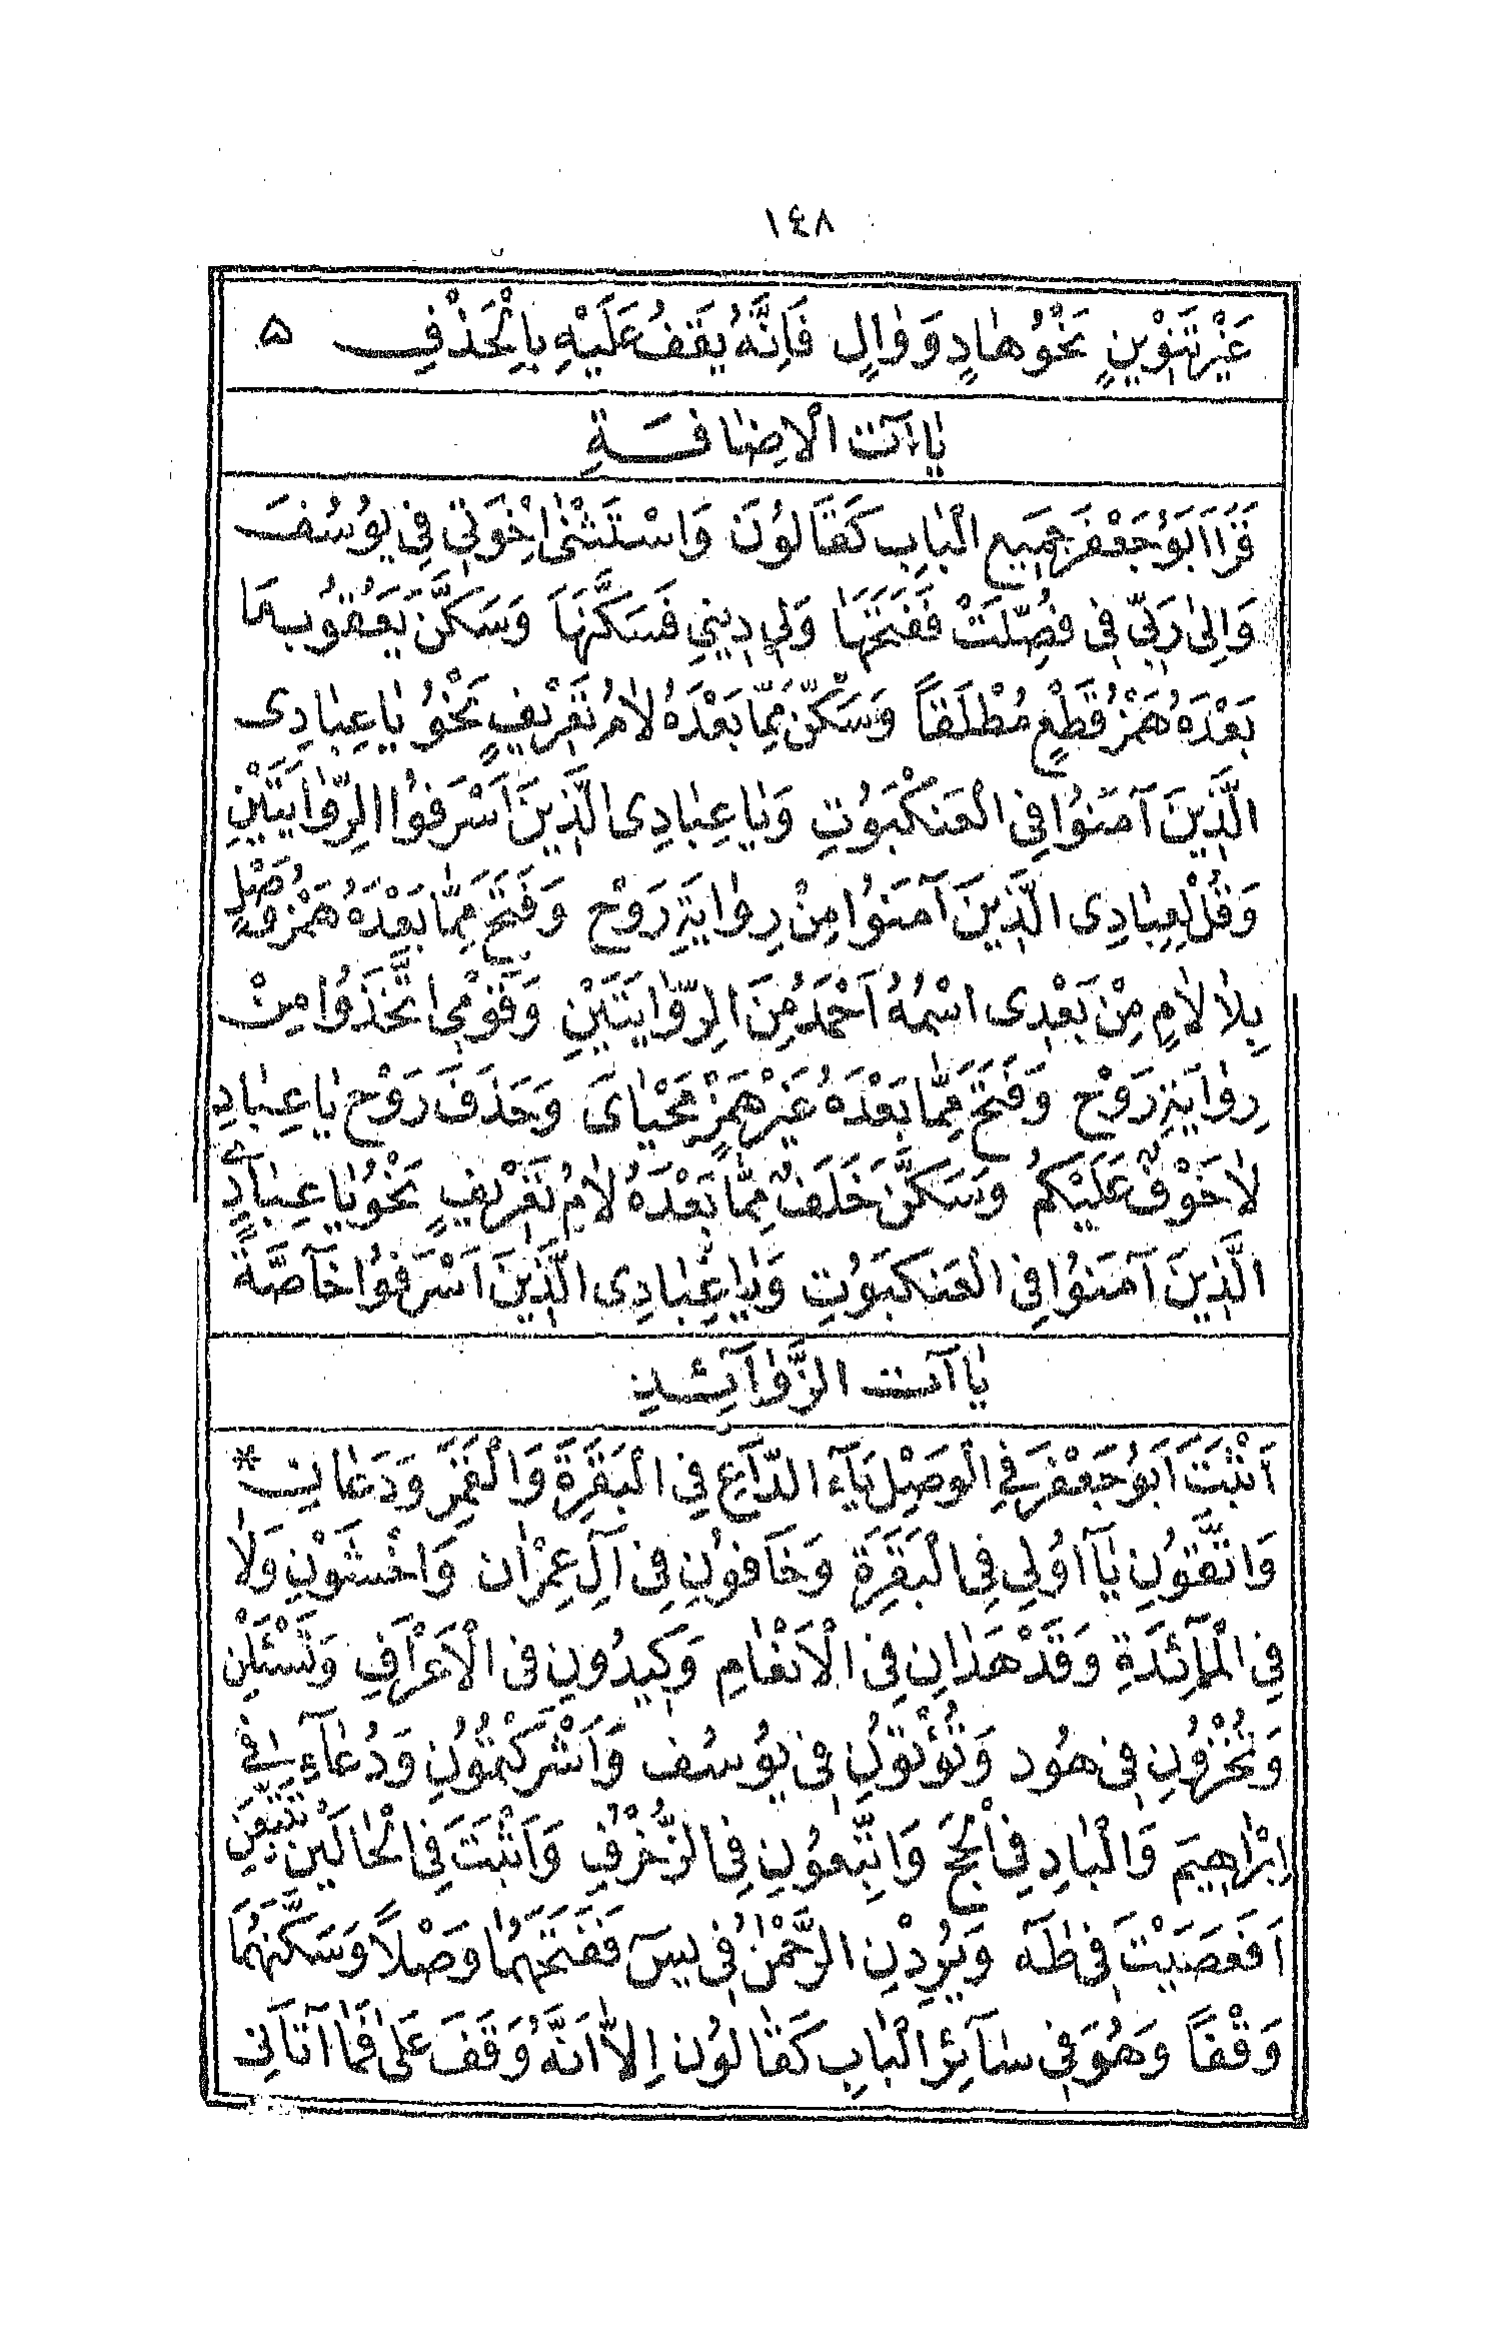 ١٤٨
غَيْرِ تَنْوِينٍ نَحْوُ هَادٍ وَ وَالٍ فَاِنَّهُ يَقِفُ عَلَيْهِ بِالْحَذْفِ ۵
يَاءَاتُ الْاِضَافَةِ
قَرَأَ اَبُو جَعْفَرٍ جَمِيعَ الْبَابِ كَقَالُونَ وَاسْتَثْنٰى اِخْوَتِي فِي يُوسُفَ
وَاِلٰى رَبِّي فِي فُصِّلَتْ فَفَتَحَهَا وَلِيَ دِينِي فَسَكَّنَهَا وَسَكَّنَ يَعْقُوبُ مَا
بَعْدَهُ هَمْزُ قَطْعٍ مُطْلَقًا وَسَكَّنَ مِمَّا بَعْدَهُ لَامُ تَعْرِيفٍ نَحْوُ يَا عِبَادِى
الَّذِينَ آمَنُوا فِى الْعَنْكَبُوتِ وَيَا عِبَادِى الَّذِينَ اَسْرَفُوا الرِّوَايَتَيْنِ
وَقُلْ لِعِبَادِى الَّذِينَ آمَنُوا مِنْ رِوَايَةِ رَوْحٍ وَفَتَحَ مِمَّا بَعْدَهُ هَمْزُ وَصْلٍ
بِلَا لَامٍ مِنْ بَعْدِى اسْمُهُ اَحْمَدُ مِنَ الرِّوَايَتَيْنِ وَقَوْمِي اتَّخَذُوا مِنْ
رِوَايَةِ رَوْحٍ وَفَتَحَ مِمَّا بَعْدَهُ غَيْرُ هَمْزٍ مَحْيَاىَ وَحَذَفَ رَوْحٌ يَا عِبَادِ
لَا خَوْفٌ عَلَيْكُمُ وَسَكَّنَ خَلَفٌ مِمَّا بَعْدَهُ لَامُ تَعْرِيفٍ نَحْوُ يَا عِبَادِى
الَّذِينَ آمَنُوا فِى الْعَنْكَبُوتِ وَيَا عِبَادِى الَّذِينَ اَسْرَفُوا خَآصَّةً
يَاآتُ الزَّوَآئِدِ
اَثْبَتَ اَبُو جَعْفَرٍ فِي الْوَصْلِ يَآءَ الدَّاعِ فِي الْبَقَرَةِ وَالْقَمَرِ وَدَعَانِ *
وَاتَّقُونِ يَآ اُولِي فِى الْبَقَرَةِ وَخَافُونِ فِى آلِ عِمْرَان وَاخْشَوْنِ وَلَا
فِى الْمَآئِدَةِ وَقَدْ هَدَانِ فِى الْاَنْعَامِ وَكِيدُونِ فِى الْاَعْرَافِ وَتَسْئَلْنِ
وَتُخْزُونِ فِى هُود وَتُؤْتُونِ فِى يُوسُف وَاَشْرَكْتُمُونِ وَدُعَآءِ فِي
اِبْرَاهِيمَ وَالْبَادِ فِي الْحَجِّ وَاتَّبِعُونِ فِى الزُّخْرُفِ وَاَثْبَتَ فِى الْحَالَيْنِ تَتَّبِعَنِ
اَفَعَصَيْتَ فِى طٰهٰ وَيُرِدْنِ الرَّحْمٰنُ فِى يٰسٓ فَفَتَحَهُمَا وَصْلًا وَسَكَّنَهُمَا
وَقْفًا وَهُوَ فِى سَآئِرِ الْبَابِ كَقَالُونَ اِلَّا اَنَّهُ وَقَفَ عَلٰى فَمَا آتَانِى